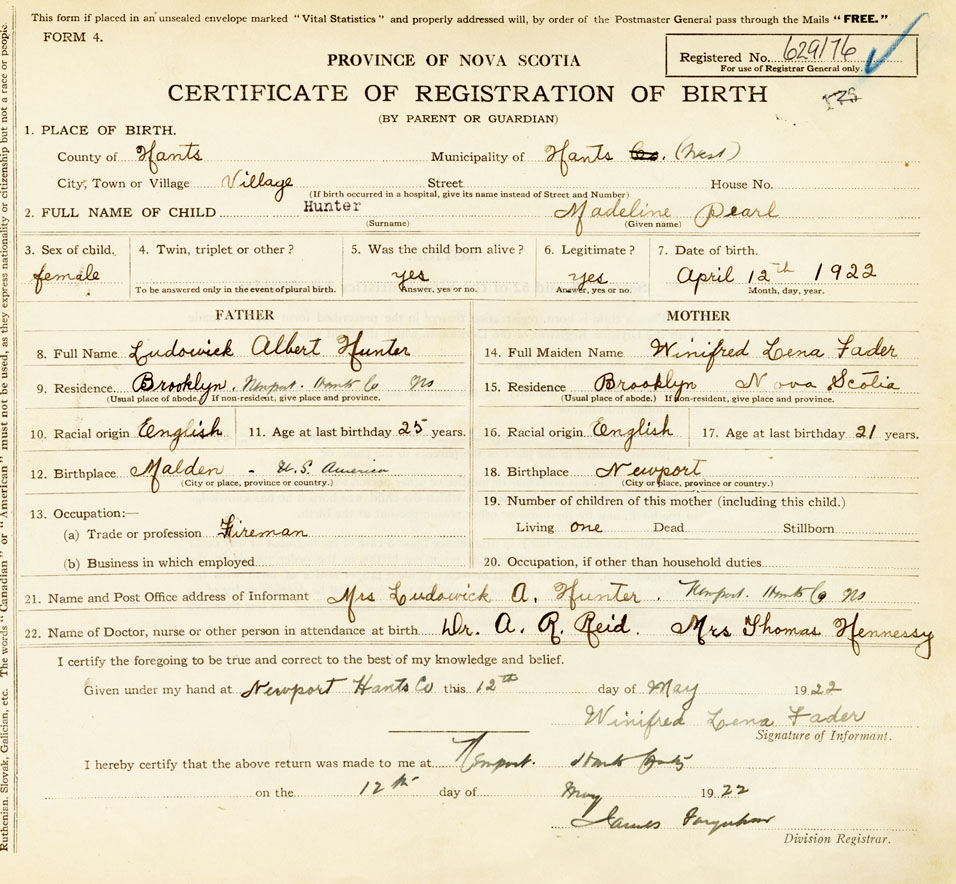 This form if placed in an unsealed envelope marked "Vital Statistics" and properly addressed will, by order of the Postmaster General pass through the Mails "FREE."
FORM 4.
Registered No. 629176
For use of Registrar General only.
PROVINCE OF NOVA SCOTIA
CERTIFICATE OF REGISTRATION OF BIRTH
(BY PARENT OR GUARDIAN)
1. PLACE OF BIRTH.
County of Hants Municipality of Hants Co. (West)
City, Town or Village Village Street House No.
(If birth occurred in a hospital, give its name instead of Street and Number)
2. FULL NAME OF CHILD Hunter Madeline Pearl
(Surname) (Given name)
3. Sex of child. 4. Twin, triplet or other? 5. Was the child born alive? 6. Legitimate? 7. Date of birth.
female yes yes April 12th 1922
To be answered only in the event of plural birth. Answer, yes or no. Answer, yes or no. Month, day, year.
FATHER MOTHER
8. Full Name Ludowick Albert Hunter 14. Full Maiden Name Winifred Lena Fader
9. Residence Brooklyn, Newport. Hants Co NS 15. Residence Brooklyn Nova Scotia
(Usual place of abode.) If non-resident, give place and province. (Usual place of abode.) If non-resident, give place and province.
10. Racial origin English 11. Age at last birthday 25 years. 16. Racial origin English 17. Age at last birthday 21 years.
12. Birthplace Malden - U.S. America 18. Birthplace Newport
(City or place, province or country.) (City or place, province or country.)
19. Number of children of this mother (including this child.)
13. Occupation:—
(a) Trade or profession Fireman Living one Dead Stillborn
(b) Business in which employed 20. Occupation, if other than household duties
21. Name and Post Office address of Informant Mrs Ludowick A. Hunter. Newport. Hants Co NS
22. Name of Doctor, nurse or other person in attendance at birth Dr. A. R. Reid. Mrs Thomas Hennessy
I certify the foregoing to be true and correct to the best of my knowledge and belief.
Given under my hand at Newport Hants Co this 12th day of May 1922
Winifred Lena Fader
Signature of Informant.
I hereby certify that the above return was made to me at Newport. Hants
on the 12th day of May 1922
James Farquhar
Division Registrar.
The words "Canadian" or "American" must not be used, as they express nationality or citizenship but not a race or people
Ruthenian, Slovak, Galician, etc.